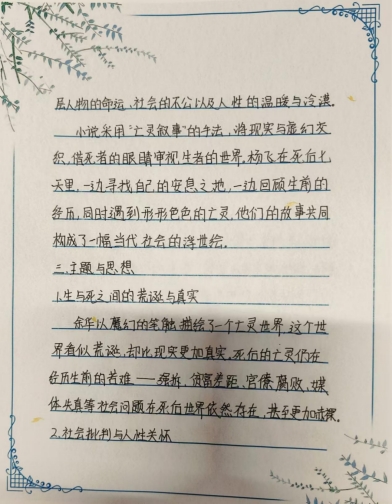 层人物的命运,社会的不公以及人性的温暖与冷漠.
小说采用“亡灵叙事”的手法,将现实与虚幻交
织,借死者的眼睛审视生者的世界.杨飞在死后七
天里,一边寻找自己的安息之地,一边回顾生前的
经历,同时遇到形形色色的亡灵,他们的故事共同
构成了一幅当代社会的浮世绘.
三.主题与思想
1.生与死之间的荒诞与真实
余华以魔幻的笔触描绘了一个亡灵世界,这个世
界看似荒诞,却比现实更加真实.死后的亡灵仍在
经历生前的苦难——强拆,贫富差距,官僚腐败,媒
体失真等社会问题在死后世界依然存在,甚至更加
2.社会批判与人性关怀